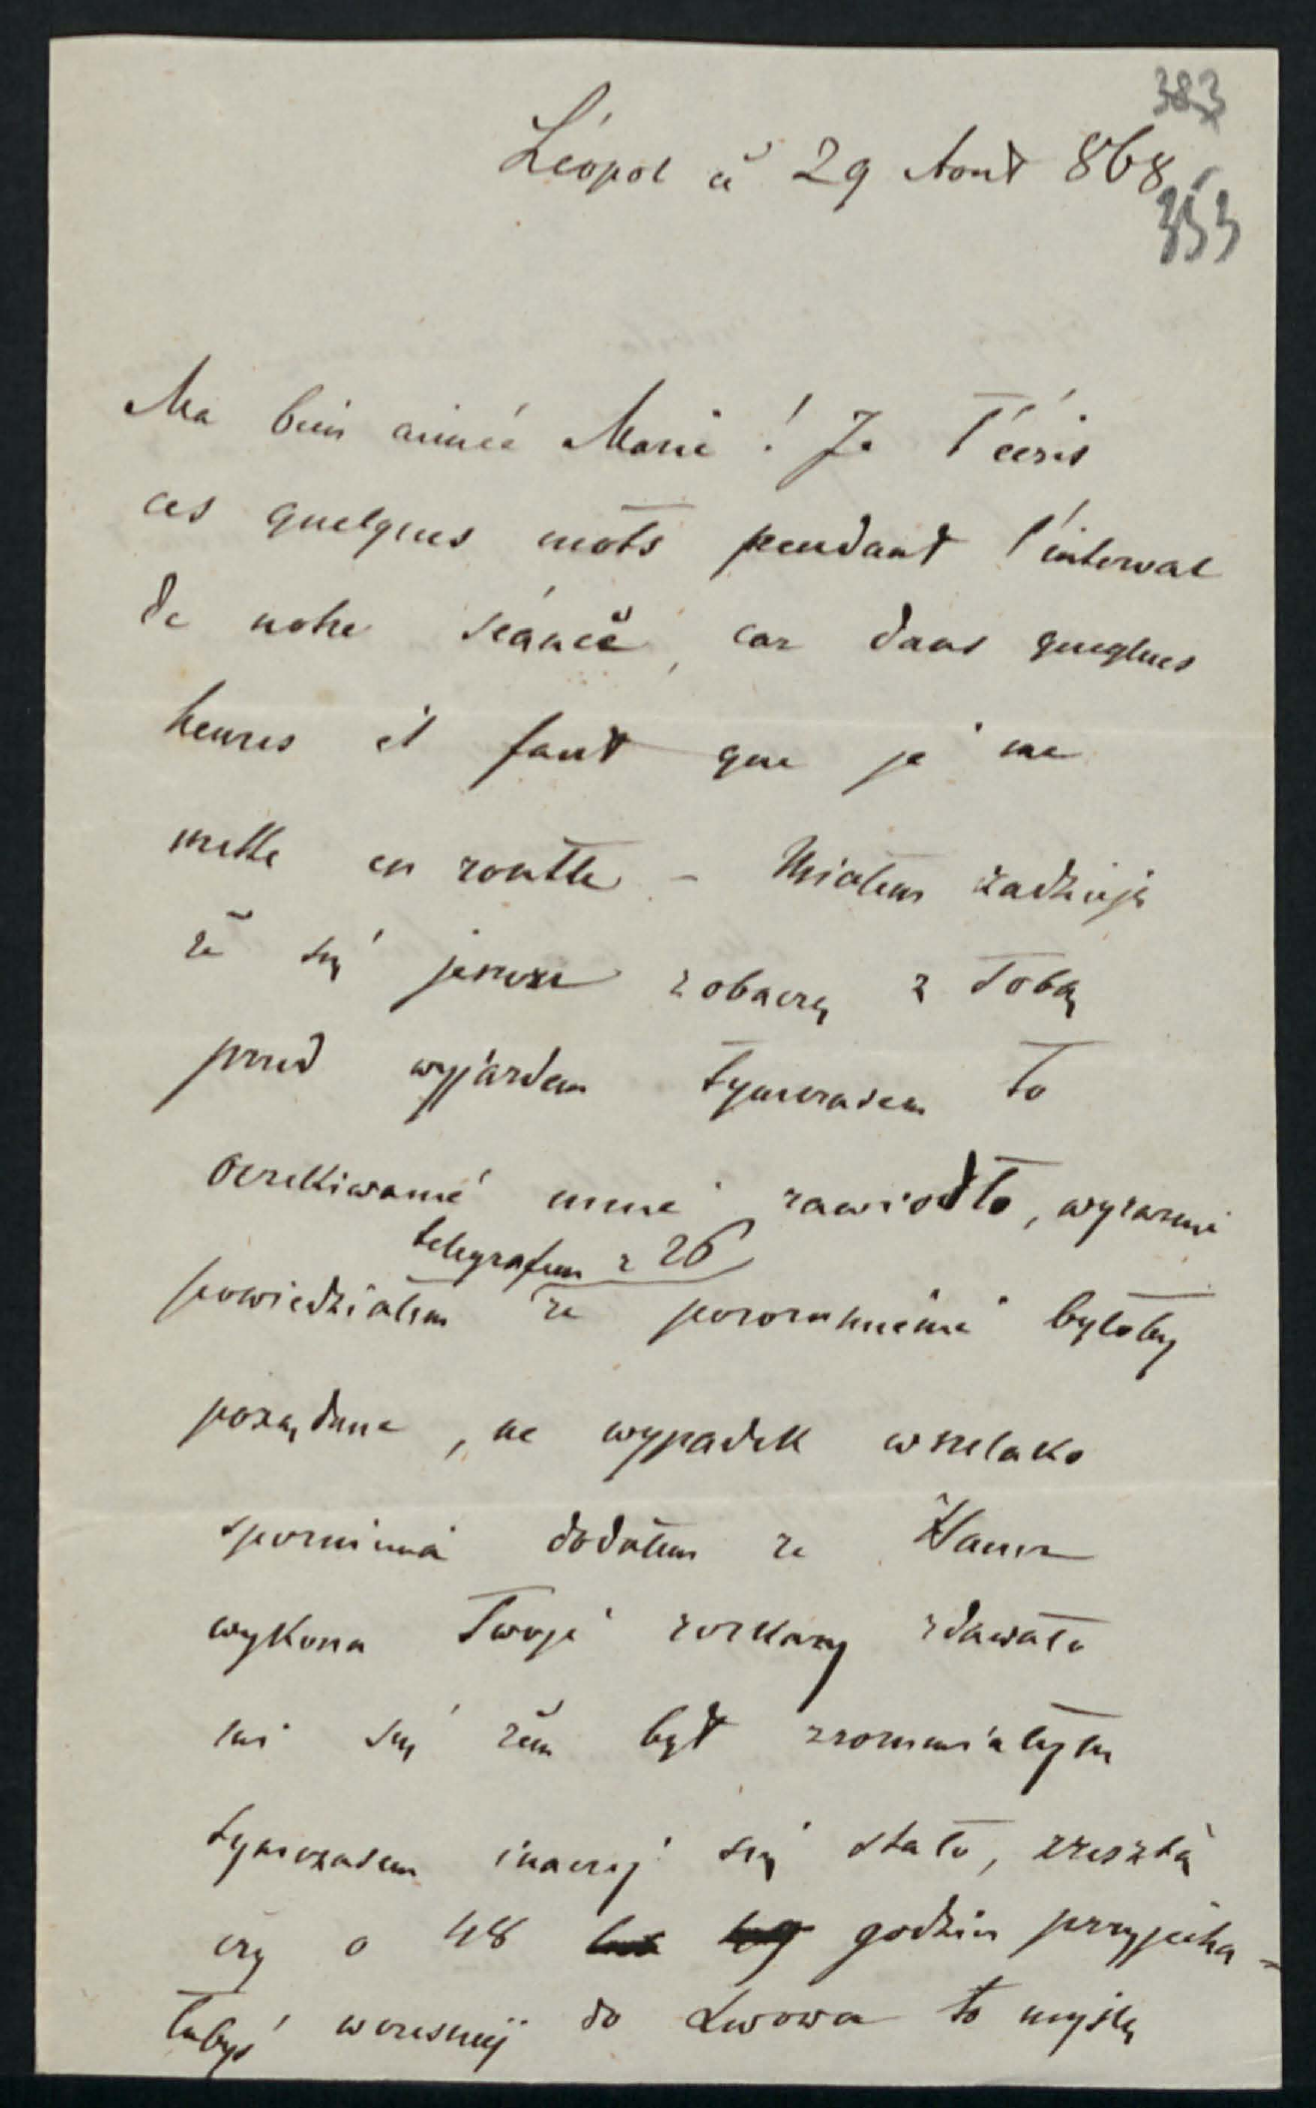 383
Léopol ce 29 Aout 868
353
Ma bien aimée Marie ! Je T'écris
ces quelques mots pendant l'interval
de notre séance, car dans queqlues
heures il faut que je me
mette en routte – Miałem nadzieję
że się jeszcze zobaczę z Tobą
przed wyjazdem tymczasem to
oczekiwanie mnie zawiodło, wyraznie
telegrafem z 26
powiedziałem że porozumienie byłoby
pożądane, na wypadek wszelako
dodałem że
wykona Twoje rozkazy zdawało
mi się żem był zrozumiałym
tymczasem inaczej się stało, zresztą
czy o 48 godzin przyjecha-
łabyś wcześniej do Lwowa to myślę